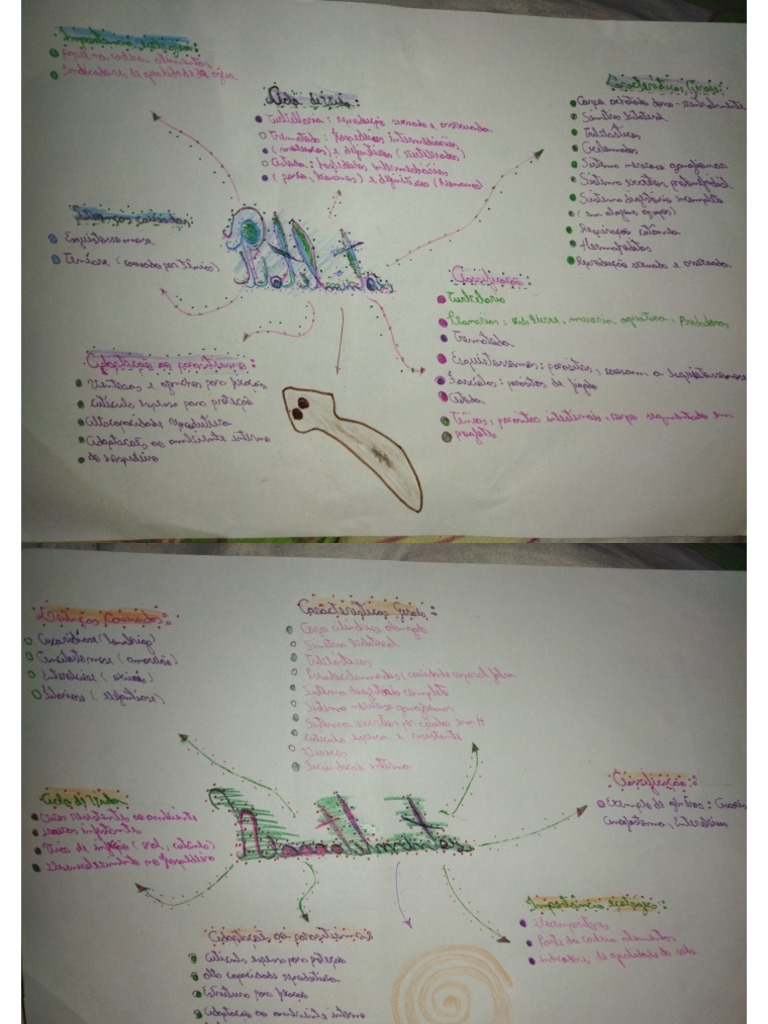 Importância ecológica:
Papel na cadeia alimentar
Indicadores de qualidade de água
Ciclo de vida:
Turbellaria: reprodução sexuada e assexuada
Trematoda: hospedeiros intermediários
(moluscos) e definitivos (vertebrados)
Cestoda: hospedeiros intermediários
(porco, bovinos) e definitivos (humanos)
Características Gerais:
Corpo achatado dorso-ventralmente
Simetria bilateral
Triblásticos
Acelomados
Sistema nervoso ganglionar
Sistema excretor protonefridial
Sistema digestório incompleto
(em alguns grupos)
Respiração cutânea
Hermafroditas
Reprodução sexuada e assexuada
Doenças causadas:
Esquistossomose
Teníase (causada por Tênias)
Platelmintos
Classificação
Turbellaria
Planárias: vida livre, maioria aquática, predadoras
Trematoda
Esquistossomos: parasitas, causam a esquistossomose
Fascíola: parasitas do fígado
Cestoda
Tênias: parasitas intestinais, corpo segmentado em
proglotes
Adaptação ao parasitismo:
Ventosas e ganchos para fixação
Cutícula espessa para proteção
Alta capacidade reprodutiva
Adaptação ao ambiente interno
do hospedeiro
Doenças causadas:
Ascaridíase (lombriga)
Ancilostomose (amarelão)
Enterobíase (oxiúros)
Filariose (elefantíase)
Características Gerais:
Corpo cilíndrico alongado
Simetria bilateral
Triblásticos
Pseudocelomados (cavidade corporal falsa
Sistema digestório completo
Sistema nervoso ganglionar
Sistema excretor por canais em H
Cutícula espessa e resistente
Dioicos
Fecundação interna
Ciclo de vida
Ovos resistentes ao ambiente
Larvas infectantes
Vias de infecção (oral, cutânea)
Desenvolvimento no hospedeiro
Nematelmintos
Classificação:
Exemplos de gêneros: Ascaris,
Ancylostoma, Enterobius
Importância ecológica:
Decompositores
Parte da cadeia alimentar
Indicadores de qualidade do solo
Adaptação ao parasitismo:
Cutícula espessa para proteção
Alta capacidade reprodutiva
Estruturas para fixação
Adaptação ao ambiente